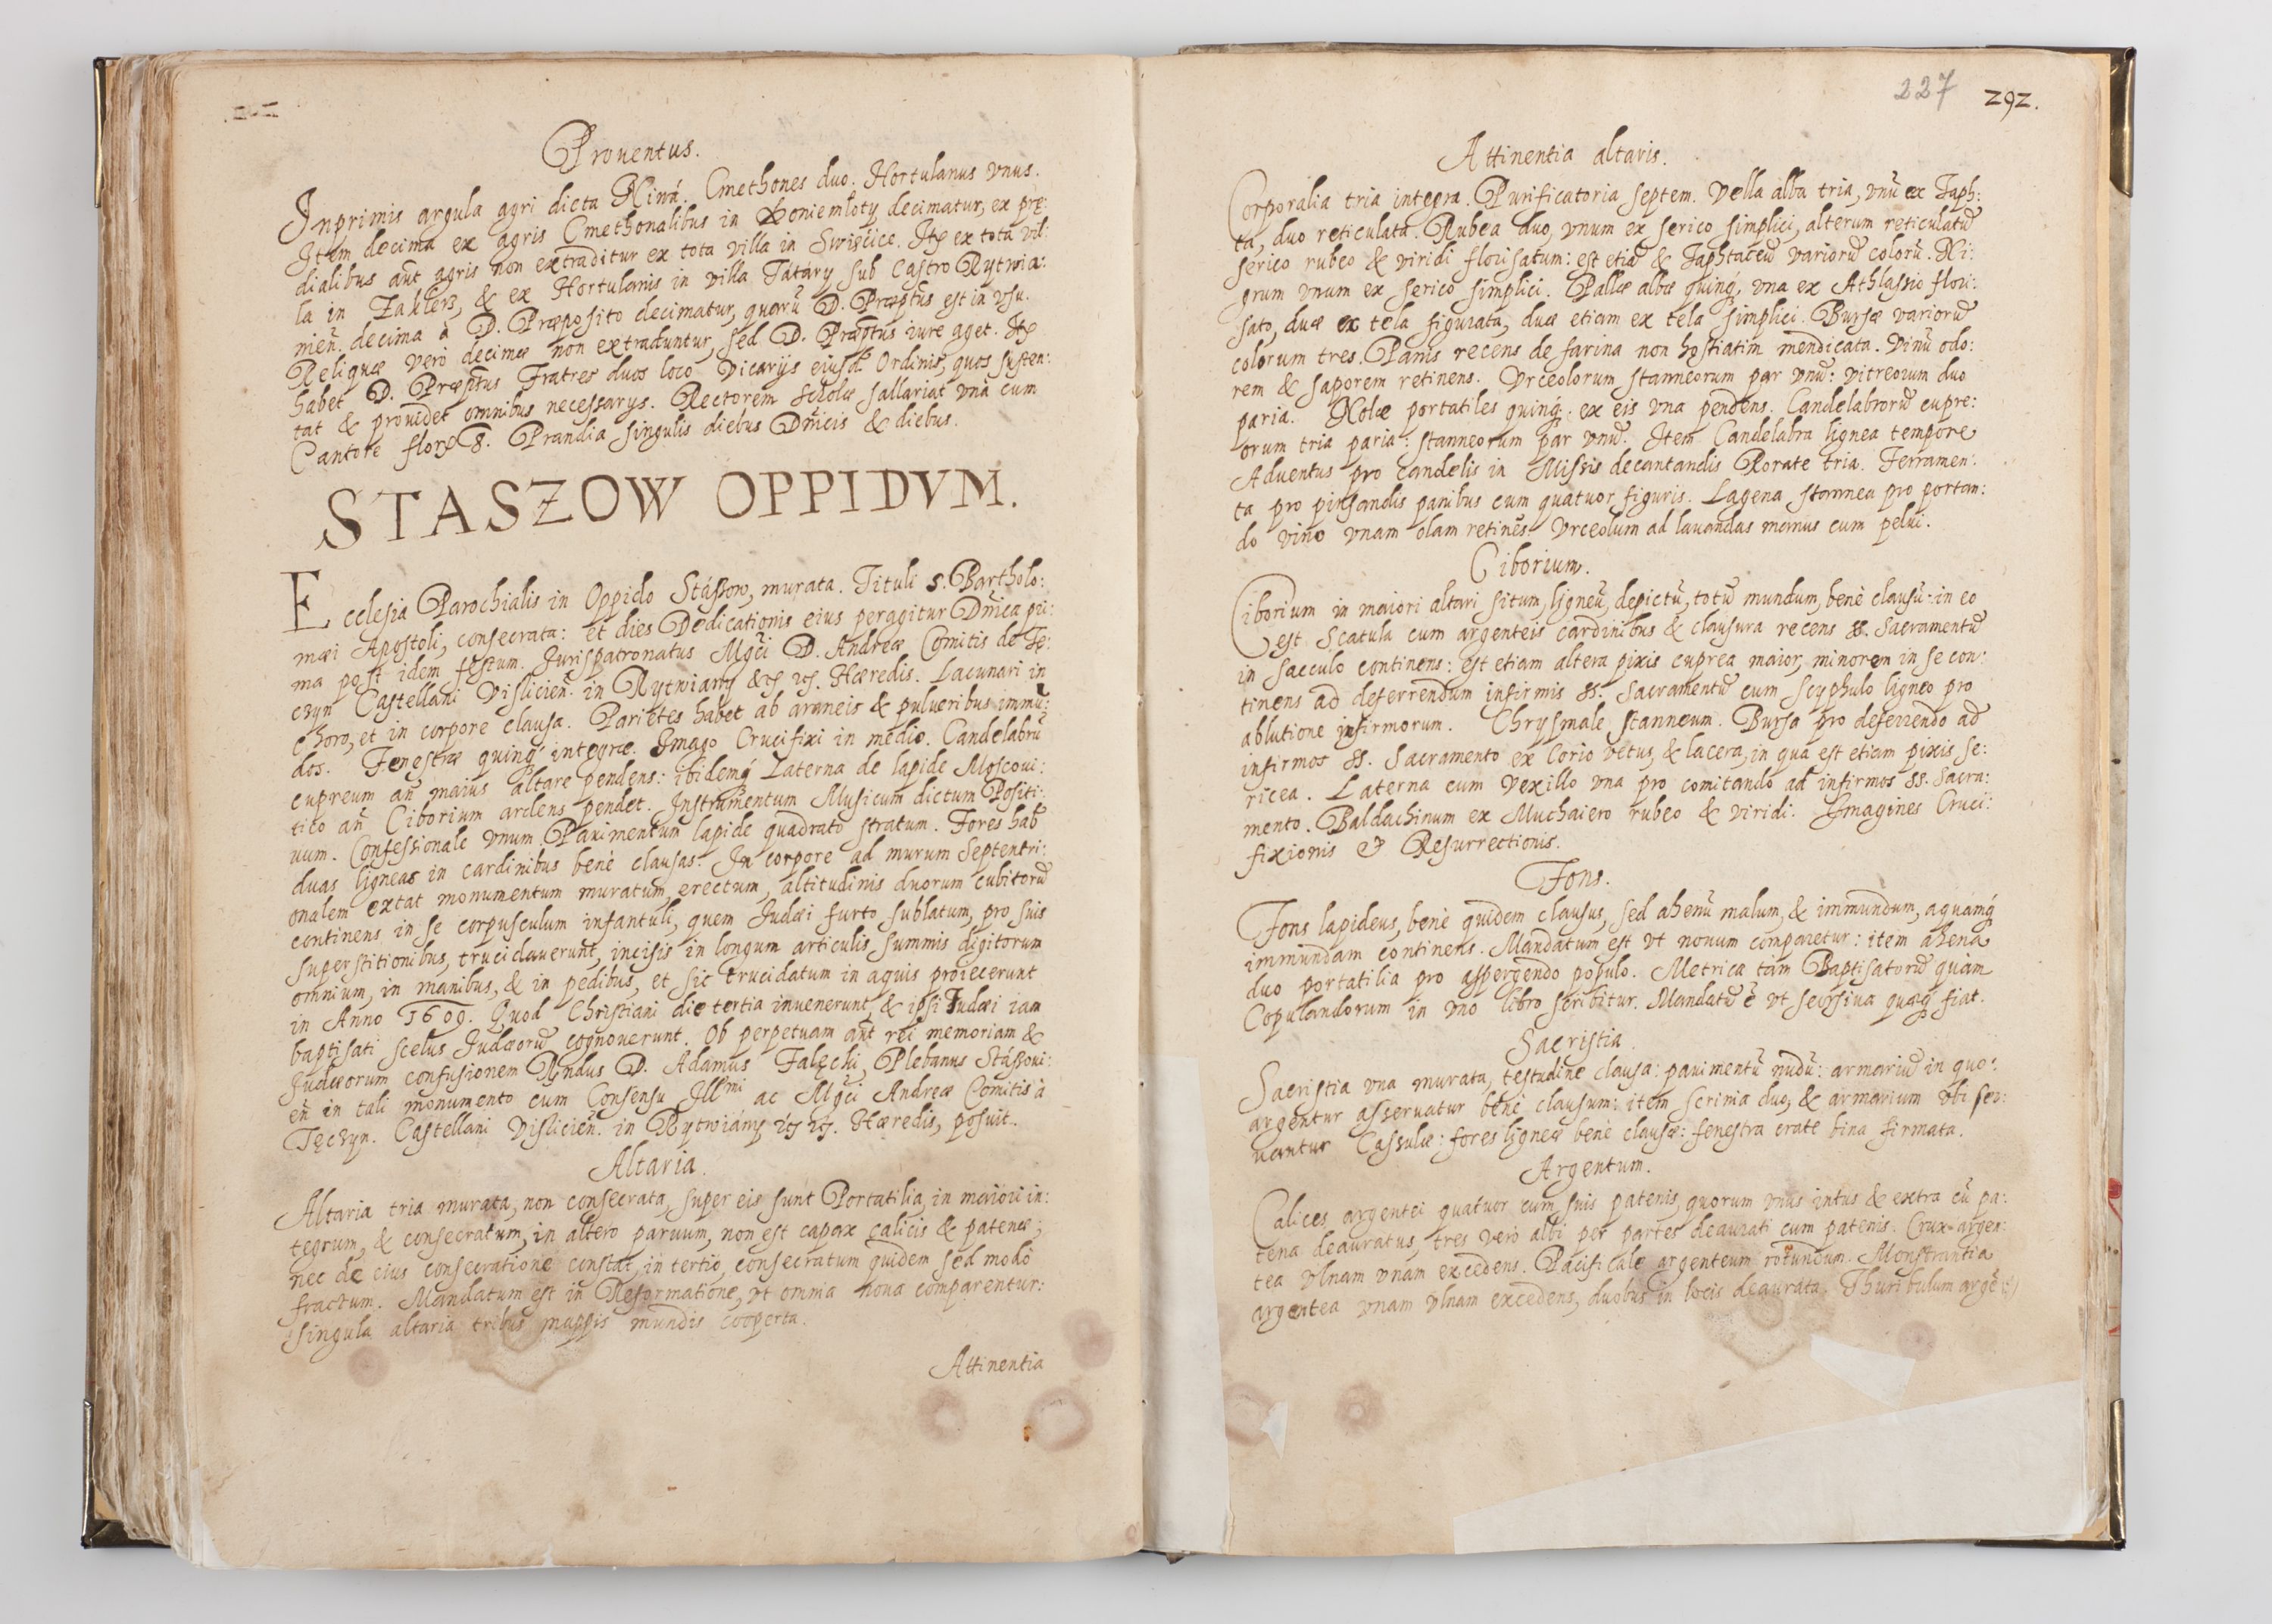 Prouentus.
Inprimis argula agri dicta Niwá. Cmethones duo. Hortulanus vnus.
Item decima ex agris Cmethonalibus in Koniemłoty decimatur, ex prę:
dialibus aūt agris non extraditur ex tota villa in Swięcice. Ite ex tota vil:
la in & ex Hortulanis in villa Tátáry sub Castro Rytwia:
nień. decima à D. Præposito decimatur, quorū D. Præptus est in vsu.
Reliquæ verò decimæ non extraduntur, sed D. Præptus iure aget. Ite
habet D. Præptus Fratres duos loco Vicarijs eiusd. Ordinis, quos susten:
tat & prouidet omnibus necessarys. Rectorem Scholæ sallariat vnà cum
Cantore 8. Prandia singulis diebus Dnīcis & diebus.
STASZOW OPPIDVM.
Ecclesia Parochialis in Oppido Stászow, murata. Tituli S. Bartholo:
mæi Apostoli, consecrata: et dies Dedicationis eius peragitur Dnīca pri:
ma post idem festum. Jurispatronatus Mgci D. Andreæ Comitis de Tę:
czyn Castellani Vislicień. in Rytwiany Hæredis. Lacunari in
choro, et in corpore clausa. Parietes habet ab araneis & pulueribus immū:
dos. Fenestræ quinq́ integræ. Imago Crucifixi in medio. Candelabrū
cupreum añ maius altare pendens: ibidemq́ Laterna de lapide Moscoui:
tico añ Ciborium ardens pendet. Instrumentum Musicum dictum Positi:
uum. Confessionale vnum. Pauimentum lapide quadrato stratum. Fores hab
duas ligneas in cardinibus benè clausas. In corpore ad murum Septentri:
onalem extat monumentum muratum, erectum, altitudinis duorum cubitorū
continens in se corpusculum infantuli, quem Judæi furto sublatum, pro suis
superstitionibus, trucidauerunt, incisis in longum articulis summis digitorum
omnium, in manibus, & in pedibus, et sic trucidatum in aquis proiecerunt
in Anno 1609. Quod Christiani die tertia inuenerunt, & ipsi Judæi iam
baptisati scelus Judæorū cognouerunt. Ob perpetuam aūt rei memoriam &
Judæorum confusionem Rndus D. Adamus Falęcki, Plebanus Stászoui:
eñ in tali monumento cum Consensu Illmi ac Mgci Andreæ Comitis à
Tęczyn. Castellani Vislicień. in Rytwiány Hæredis, posuit.
Altaria.
Altaria tria murata, non consecrata, super eis sunt Portatilia, in maiori in:
tegrum, & consecratum, in altero paruum, non est capax calicis & patenæ;
nec de eius consecratione constat, in tertio, consecratum quidem sed modò
fractum. Mandatum est in Reformatione, vt omnia noua comparentur:
singula altaria tribus mappis mundis cooperta.
Attinentia
227 292.
Attinentia altaris.
Corporalia tria integra. Purificatoria septem. Vella alba tria, vnū ex Taph:
ta, duo reticulata. Rubea duo, vnum ex serico simplici, alterum reticulatū
serico rubeo & viridi florisatum: est etiā & Taphtaceū variorū colorū. Ni:
grum vnum ex serico simplici. Pallæ albæ quinq́, vna ex Athlassio flori:
sato, duæ ex tela figurata, duæ etiam ex tela simplici. Bursæ variorū
colorum tres. Panis recens de farina non hostiatim mendicata. Vinū odo:
rem & saporem retinens. Vrceolorum stanneorum par vnū: vitreorum duo
paria. Nolæ portatiles quinq́: ex eis vna pendens. Candelabrorū cupre:
orum tria paria: stanneorum par vnū. Item Candelabra lignea tempore
Aduentus pro candelis in Missis decantandis Rorate tria. Ferramen:
ta pro pinsandis panibus cum quatuor figuris. Lagena stannea pro portan:
do vino vnam olam retinēs. Vrceolum ad lauandas manus cum pelui.
Ciborium.
Ciborium in maiori altari situm, ligneū, depictū, totū mundum, benè clausū: in eo
est Scatula cum argenteis cardinibus & clausura recens SS. Sacramentū
in sacculo continens: est etiam altera pixis cuprea maior, minorem in se con:
tinens ad deferrendum infirmis SS. Sacramentū cum scyphulo ligneo pro
ablutione infirmorum. Chrysmale stanneum. Bursa pro deferrendo ad
infirmos SS. Sacramento ex Corio vetus, & lacera, in qua est etiam pixis se:
ricea. Laterna cum Vexillo vna pro comitando ad infirmos SS. Sacra:
mento. Baldachinum ex Muchaiero rubeo & viridi. Imagines Cruci:
fixionis & Resurrectionis.
Fons.
Fons lapideus, benè quidem clausus, sed ahenū malum, & immundum, aquamq́
immundam continens. Mandatum est vt nouum comparetur: item ahena
duo portatilia pro aspergendo populo. Metrica tàm Baptisatorū quàm
Copulandorum in vno libro scribitur. Mandatū ē vt seorsiua quæq́ fiat.
Sacristia.
Sacristia vna murata, testudine clausa: pauimentū nudū: armariū in quo
argentur asseruatur benè clausum: item scrinia duo, & armarium vbi ser:
uantur Cassulæ: fores ligneæ benè clausæ: fenestra crate bina firmata.
Argentum.
Calices argentei quatuor cum suis patenis, quorum vnus intus & extra cū pa:
tena deauratus, tres verò albi per partes deaurati cum patenis. Crux argen:
tea vlnam vnam excedens. Pacificale argenteum rotundum. Monstrantia
argentea vnam vlnam excedens, duobus in locis deaurata. Thuribulum